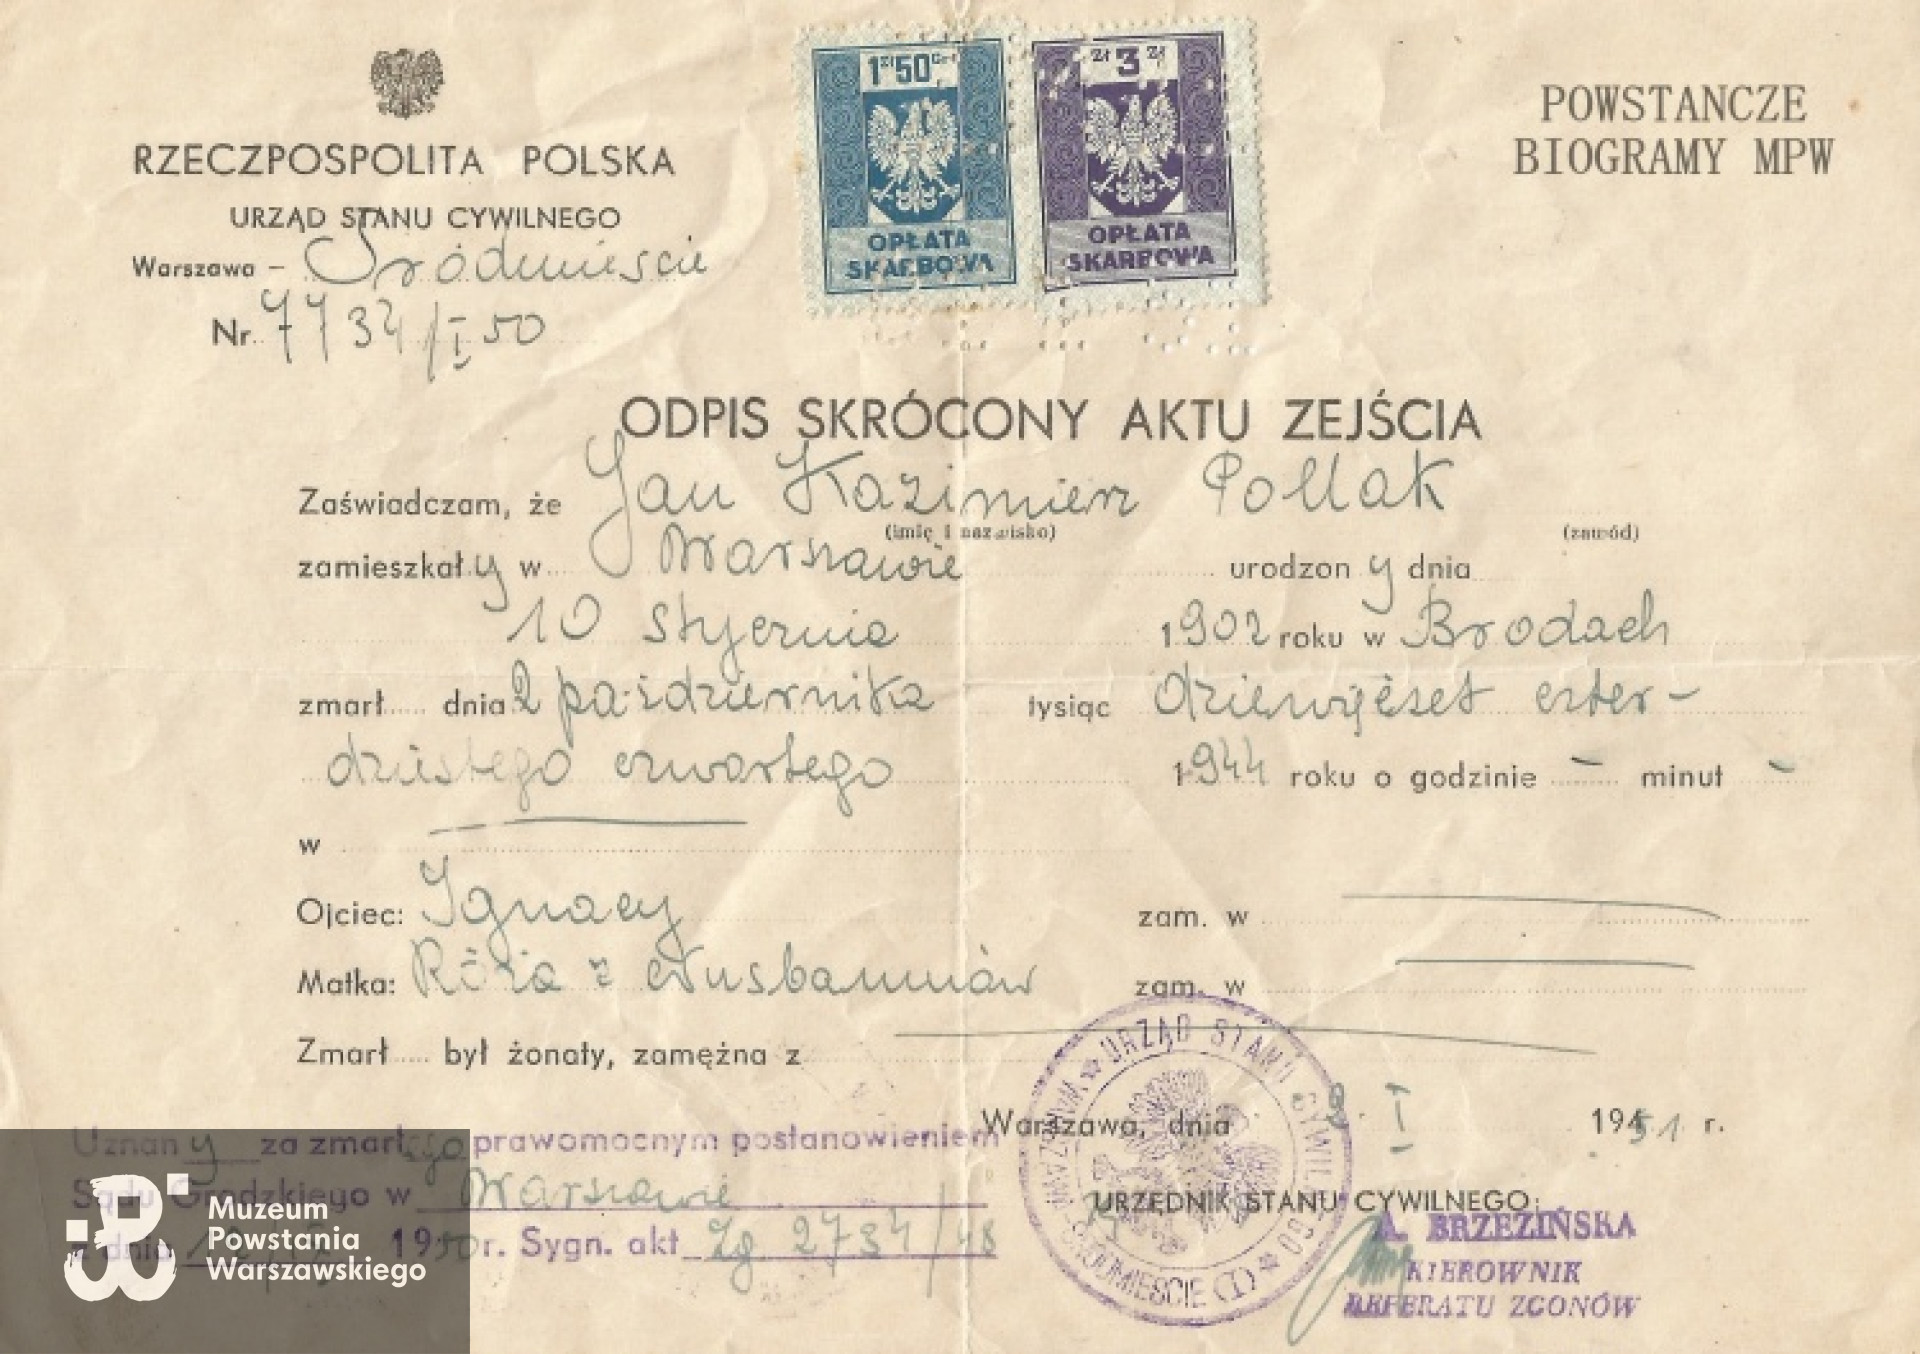 1 zł 50 gr
OPŁATA
SKARBOWA
zł 3 zł
OPŁATA
SKARBOWA
POWSTANCZE
BIOGRAMY MPW
RZECZPOSPOLITA POLSKA
URZĄD STANU CYWILNEGO
Warszawa – Śródmieście
Nr. 7734/I 50
ODPIS SKRÓCONY AKTU ZEJŚCIA
Zaświadczam, że Jan Kazimierz Pollak
(imię i nazwisko) (zawód)
zamieszkały w Warszawie urodzony dnia
10 stycznia 1902 roku w Brodach
zmarł dnia 2 października tysiąc dziewięćset czter-
dziestego czwartego 1944 roku o godzinie – minut –
w
Ojciec: Ignacy zam. w
Matka: Róża z zam. w
Zmarł był żonaty, zamężna z
Warszawa, dnia I 1951 r.
Uznany za zmarłego prawomocnym postanowieniem
Sądu Grodzkiego w Warszawie
z dnia 1950 r. Sygn. akt Zg 2734/48
URZĘDNIK STANU CYWILNEGO:
A. BRZEZIŃSKA
KIEROWNIK
REFERATU ZGONÓW
URZĄD STANU CYWILNEGO * WARSZAWA-ŚRÓDMIEŚCIE (I) *
Muzeum
Powstania
Warszawskiego